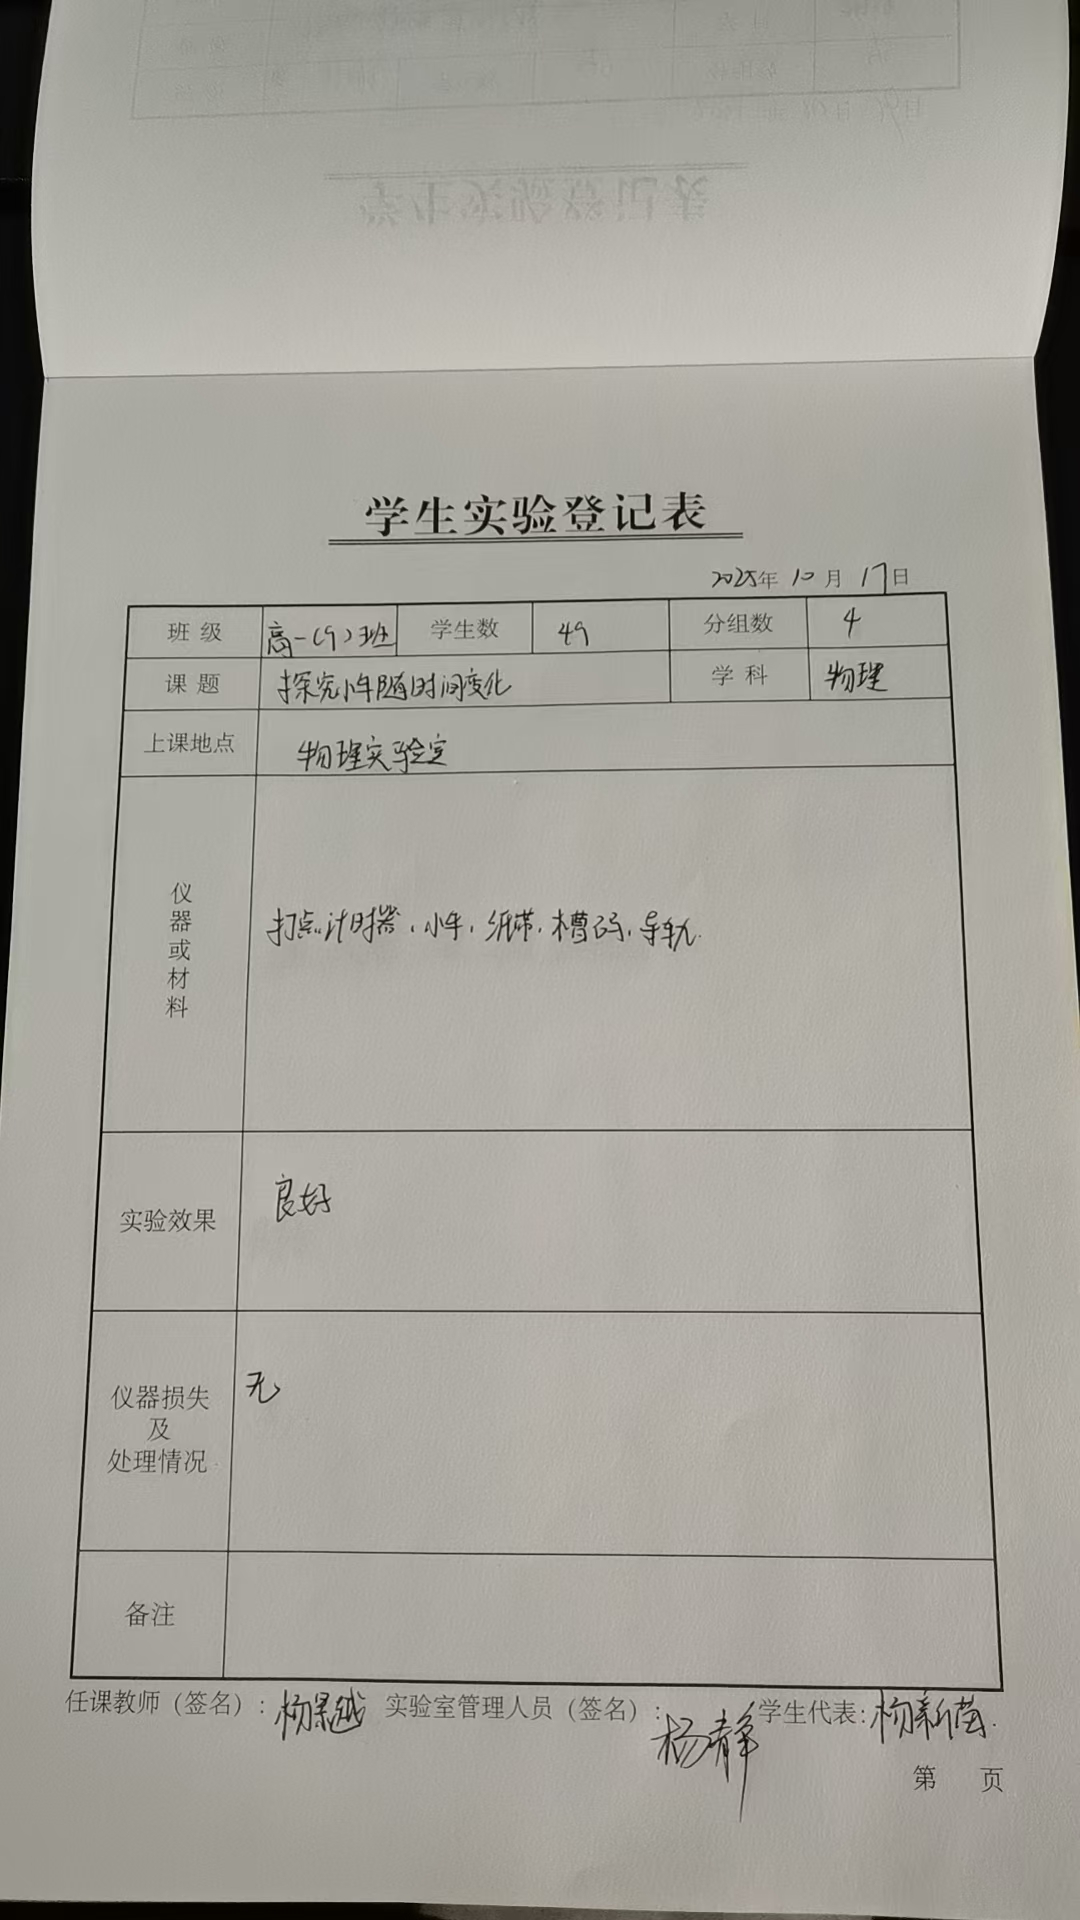 学生实验登记表
2025年 10月 17日
班 级 高一(9)班 学生数 49 分组数 4
课 题 探究小车随时间变化 学 科 物理
上课地点 物理实验室
仪器或材料 打点计时器、小车、纸带、槽码、导轨.
实验效果 良好
仪器损失
及
处理情况 无
备注
任课教师（签名）: 杨景越 实验室管理人员（签名）: 杨静 学生代表: 杨新茴.
第 页